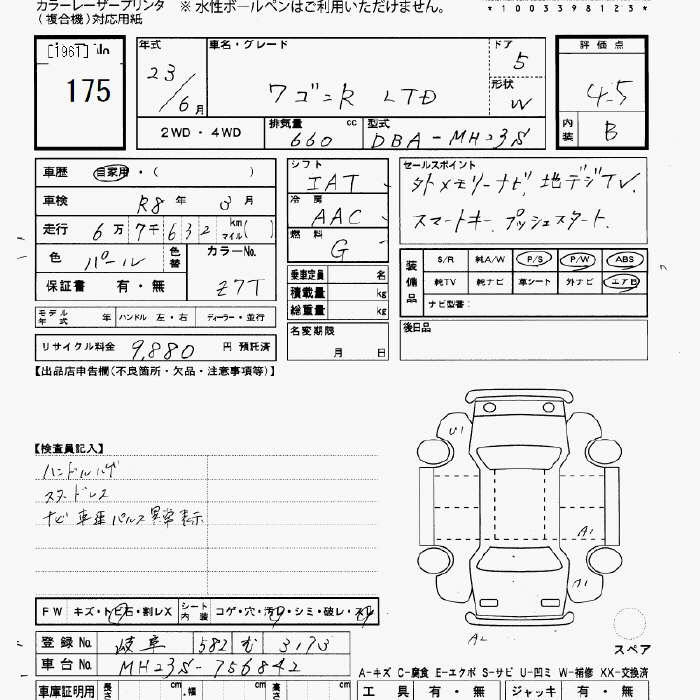 カラーレーザープリンタ ※ 水性ボールペンはご利用いただけません。
(複合機)対応用紙
*1003398123*
175
年式 23/6月
車名・グレード ワゴンR LTD
ドア 5
形状 W
評価点 4.5
内装 B
2WD・4WD
排気量 660 cc
型式 DBA-MH23S
車歴 自家用・( )
車検 R8年 3月
走行 6万7千632 km マイル( )
色 パール 色替
カラーNo. Z7T
保証書 有・無
シフト IAT
冷房 AAC
燃料 G
乗車定員 名
積載量 kg
総重量 kg
セールスポイント
外メモリーナビ、地デジTV、
スマートキー、プッシュスタート、
装備品 S/R 純A/W P/S P/W ABS
純TV 純ナビ 革シート 外ナビ エアB
ナビ型番:
モデル年式 年 ハンドル 左・右 ディーラー・並行
名変期限 月 日
後日品
リサイクル料金 9,880 円 預託済
【出品店申告欄(不良箇所・欠品・注意事項等)】
【検査員記入】
ハンドルハゲ
スタッドレス
ナビ 車速パルス異常表示
U1
A1
A2
スペア
FW キズ・トビ石・割レX シート内装 コゲ・穴・汚レ・シミ・破レ・スレ
登録No. 岐阜 582 む 3173
車台No. MH23S-756842
A-キズ C-腐食 E-エクボ S-サビ U-凹ミ W-補修 XX-交換済
車庫証明用 長さ cm 幅 cm 高さ cm
工具 有・無 ジャッキ 有・無